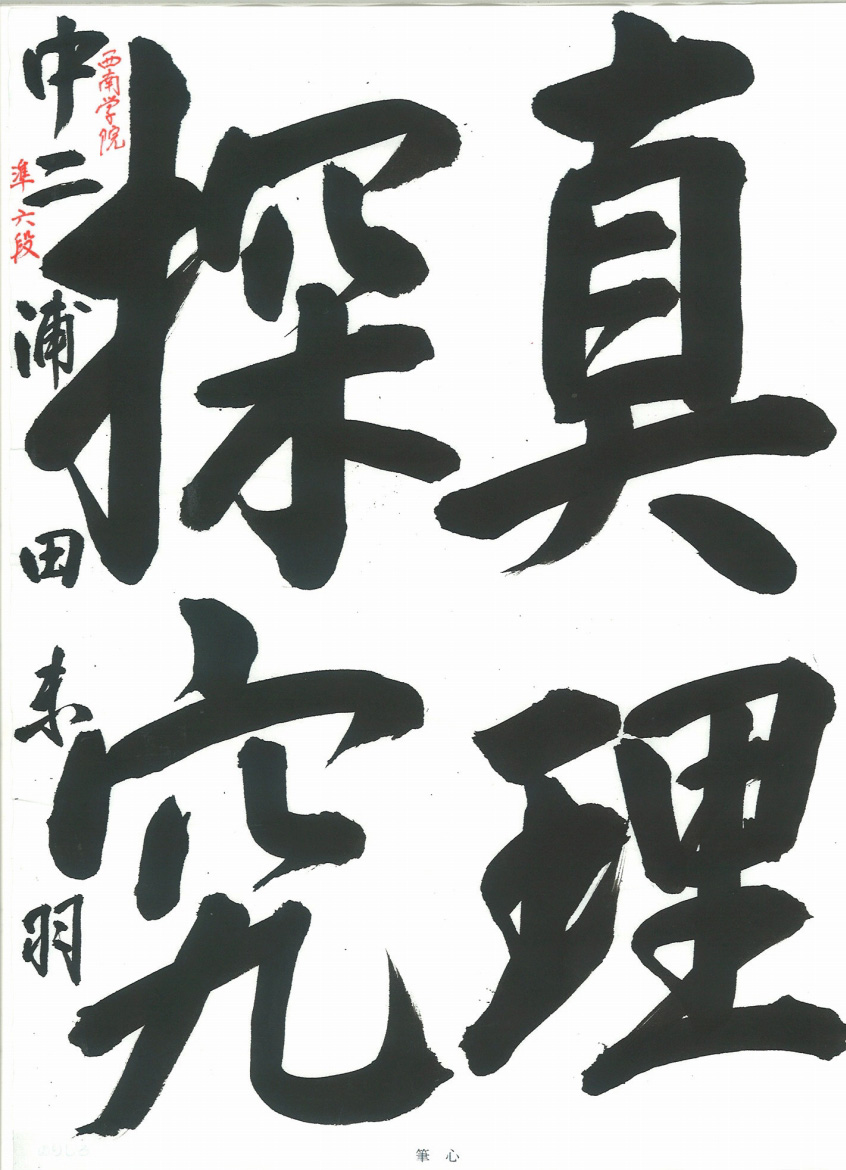 真理
探究
西南学院
準六段
中二 浦田 来羽
筆心